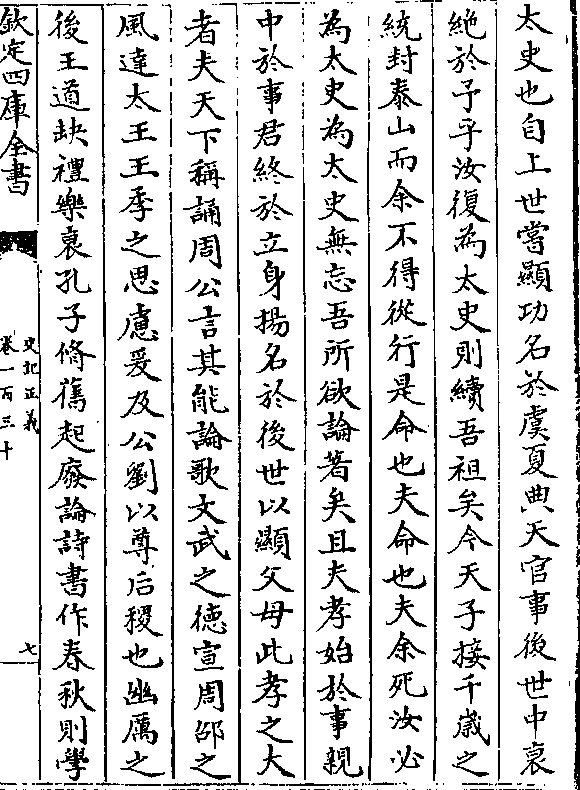 太史也自上世嘗顯功名於虞夏典天官事後世中衰
絶於予乎汝復為太史則續吾祖矣今天子接千歳之
統封泰山而余不得從行是命也夫命也夫余死汝必
為太史為太史無忘吾所欲論著矣且夫孝始於事親
中於事君終於立身揚名於後世以顯父母此孝之大
者夫天下稱誦周公言其能論歌文武之德宣周邵之
風達太王王季之思慮爰及公劉以尊后稷也幽厲之
後王道缺禮樂衰孔子脩舊起廢論詩書作春秋則學
欽定四庫全書
史記正義
卷一百三十
七